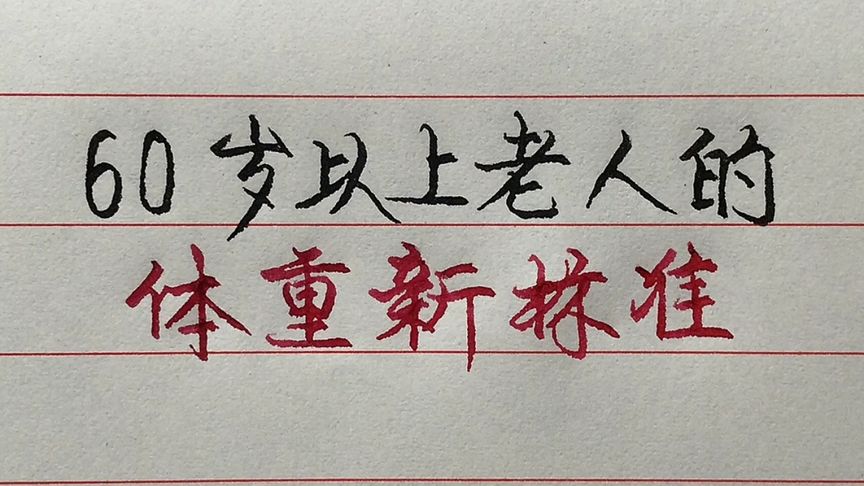 60岁以上老人的
体重新标准